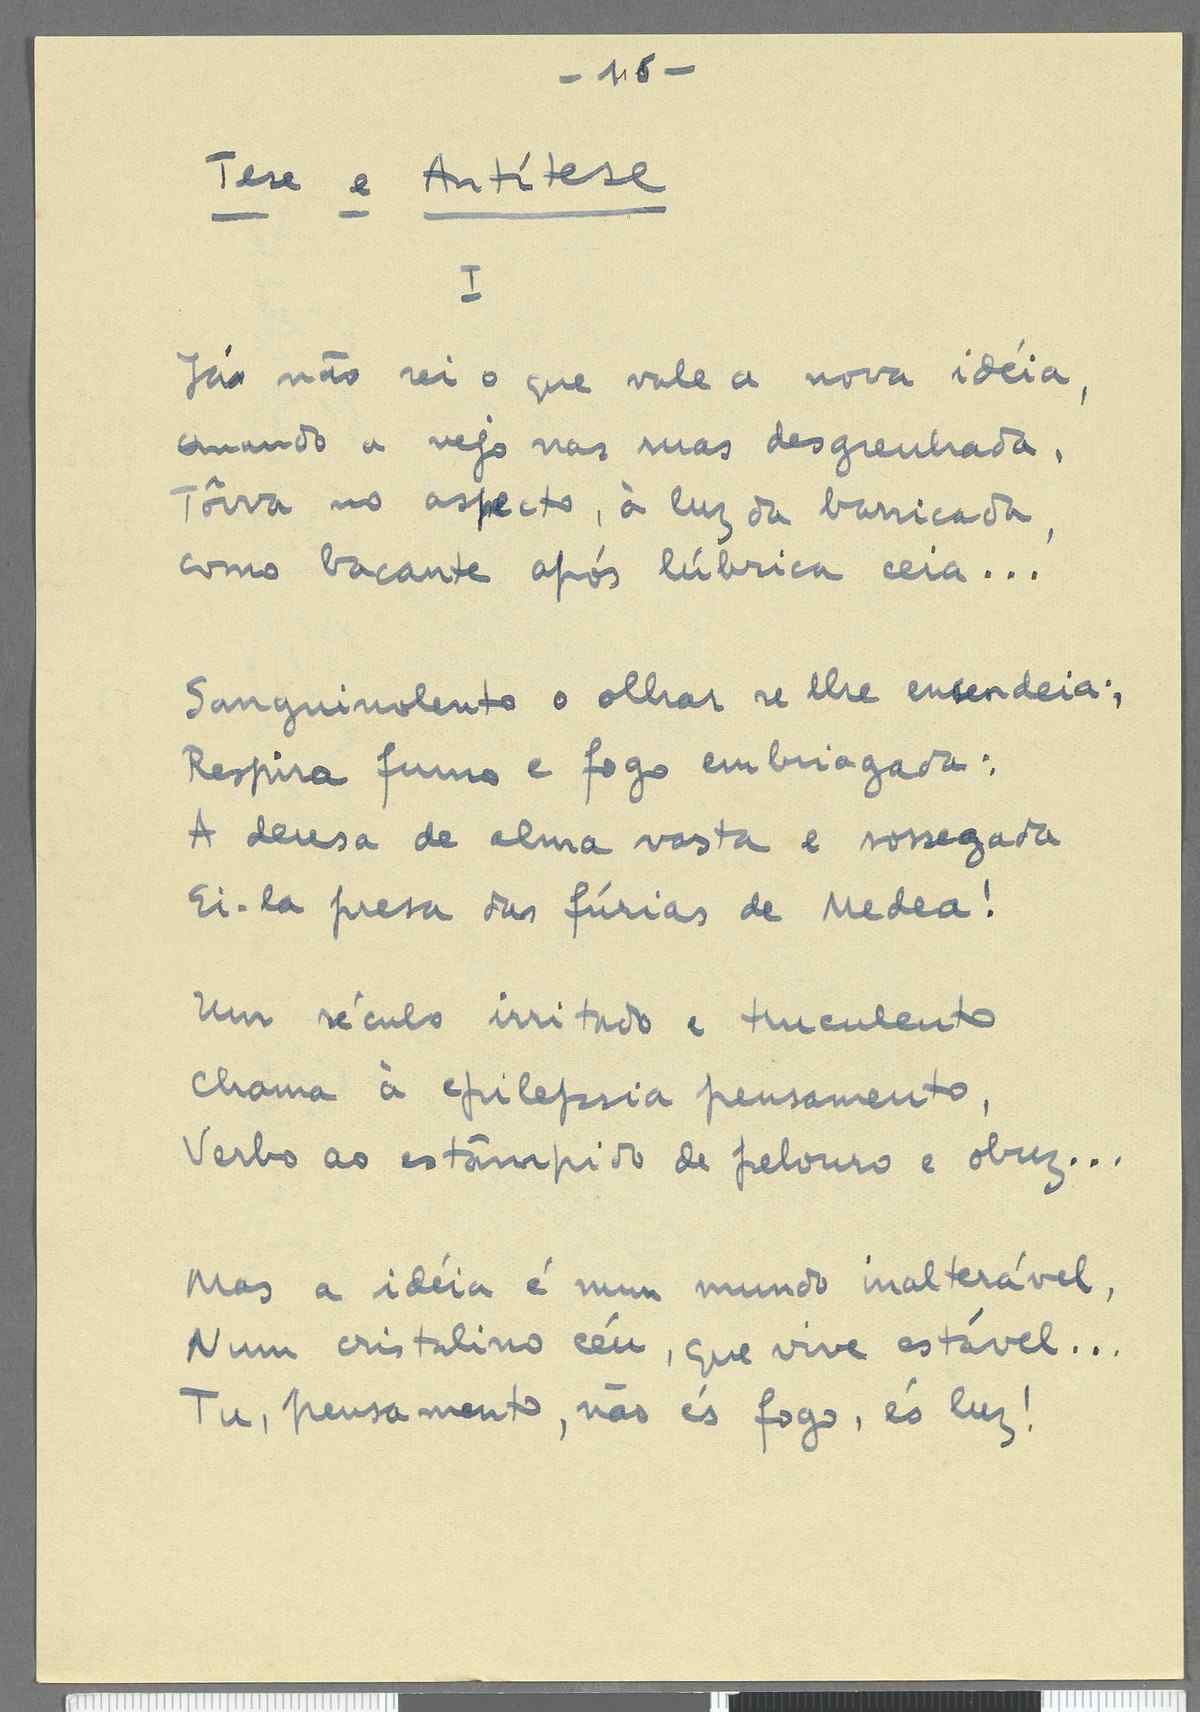 Tese e Antítese
I
Já não sei o que vale a nova idéia,
quando a vejo nas ruas desgrenhada,
Tôrva no aspecto, à luz da barricada,
como bacante após lúbrica ceia...
Sanguinolento o olhar se lhe encendeia:,
Respira fumo e fogo embriagada:,
A deusa de alma vasta e sossegada
Ei-la presa das fúrias de Medea!
Um século irritado e truculento
Chama à epilepsia pensamento,
Verbo ao estâmpido de pelouro e obuz...
Mas a idéia é num mundo inalterável,
Num cristalino céu, que vive estável...
Tu, pensamento, não és fogo, és luz!